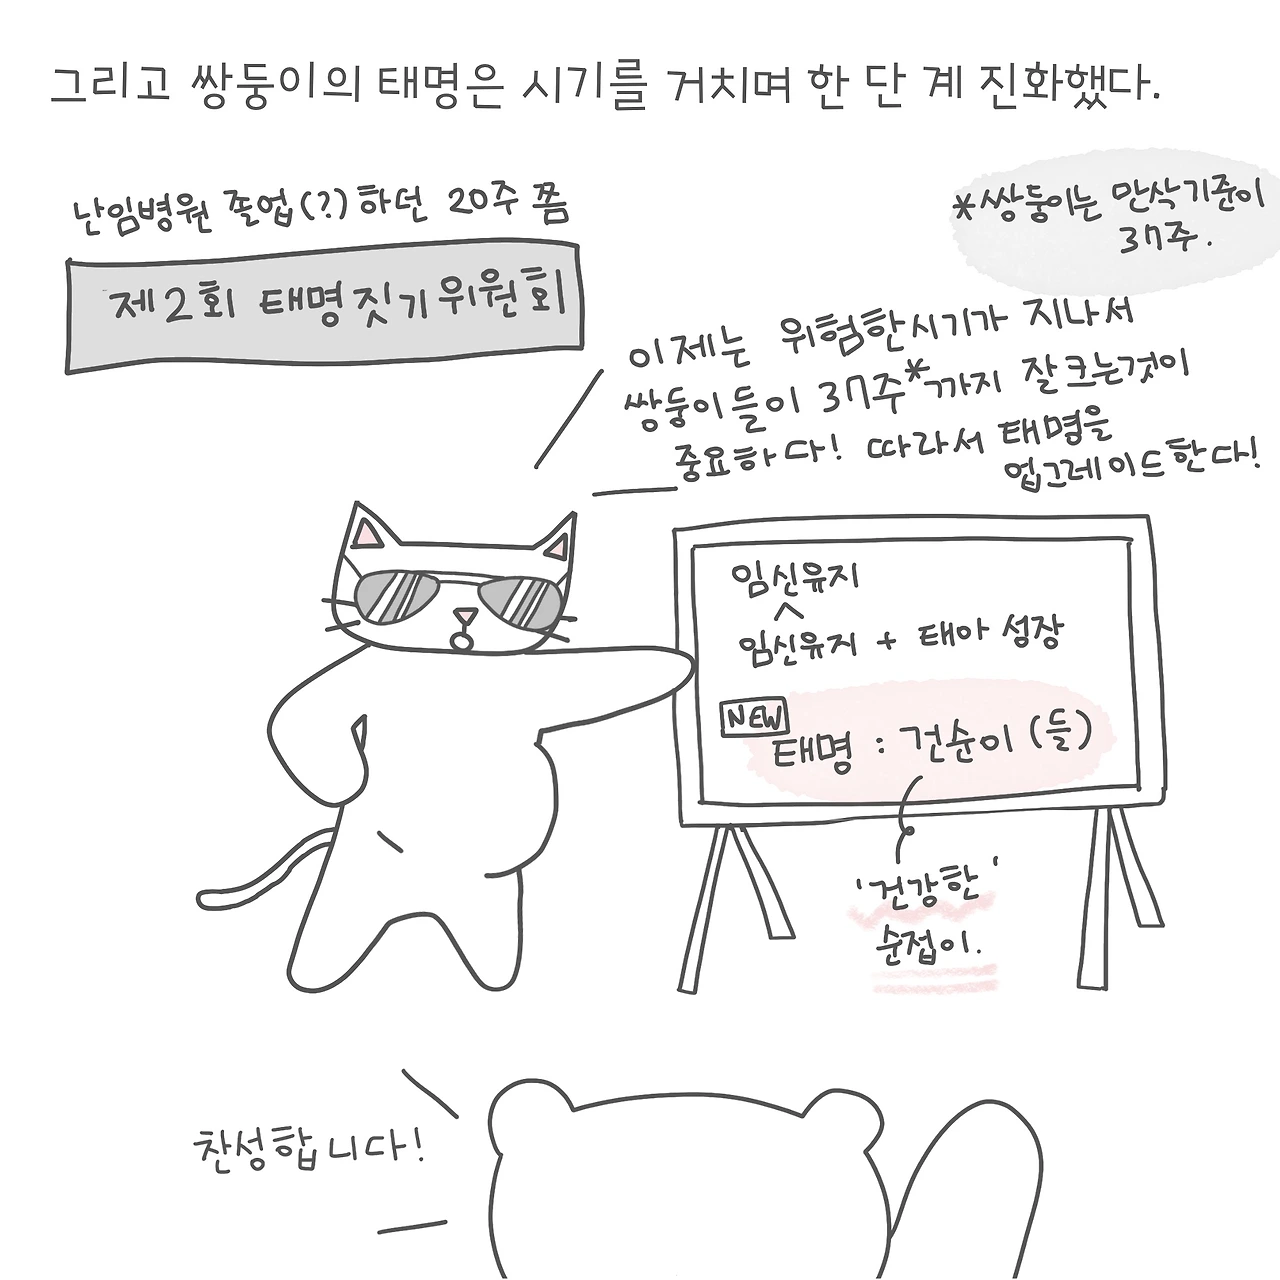 그리고 쌍둥이의 태명은 시기를 거치며 한 단계 진화했다.
난임병원 졸업(?)하던 20주 쯤
제2회 태명짓기위원회
*쌍둥이는 만삭기준이
37주.
이제는 위험한시기가 지나서
쌍둥이들이 37주*까지 잘크는것이
중요하다! 따라서 태명을
업그레이드한다!
임신유지
^
임신유지 + 태아 성장
NEW
태명 : 건순이 (들)
'건강한'
순접이.
찬성합니다!